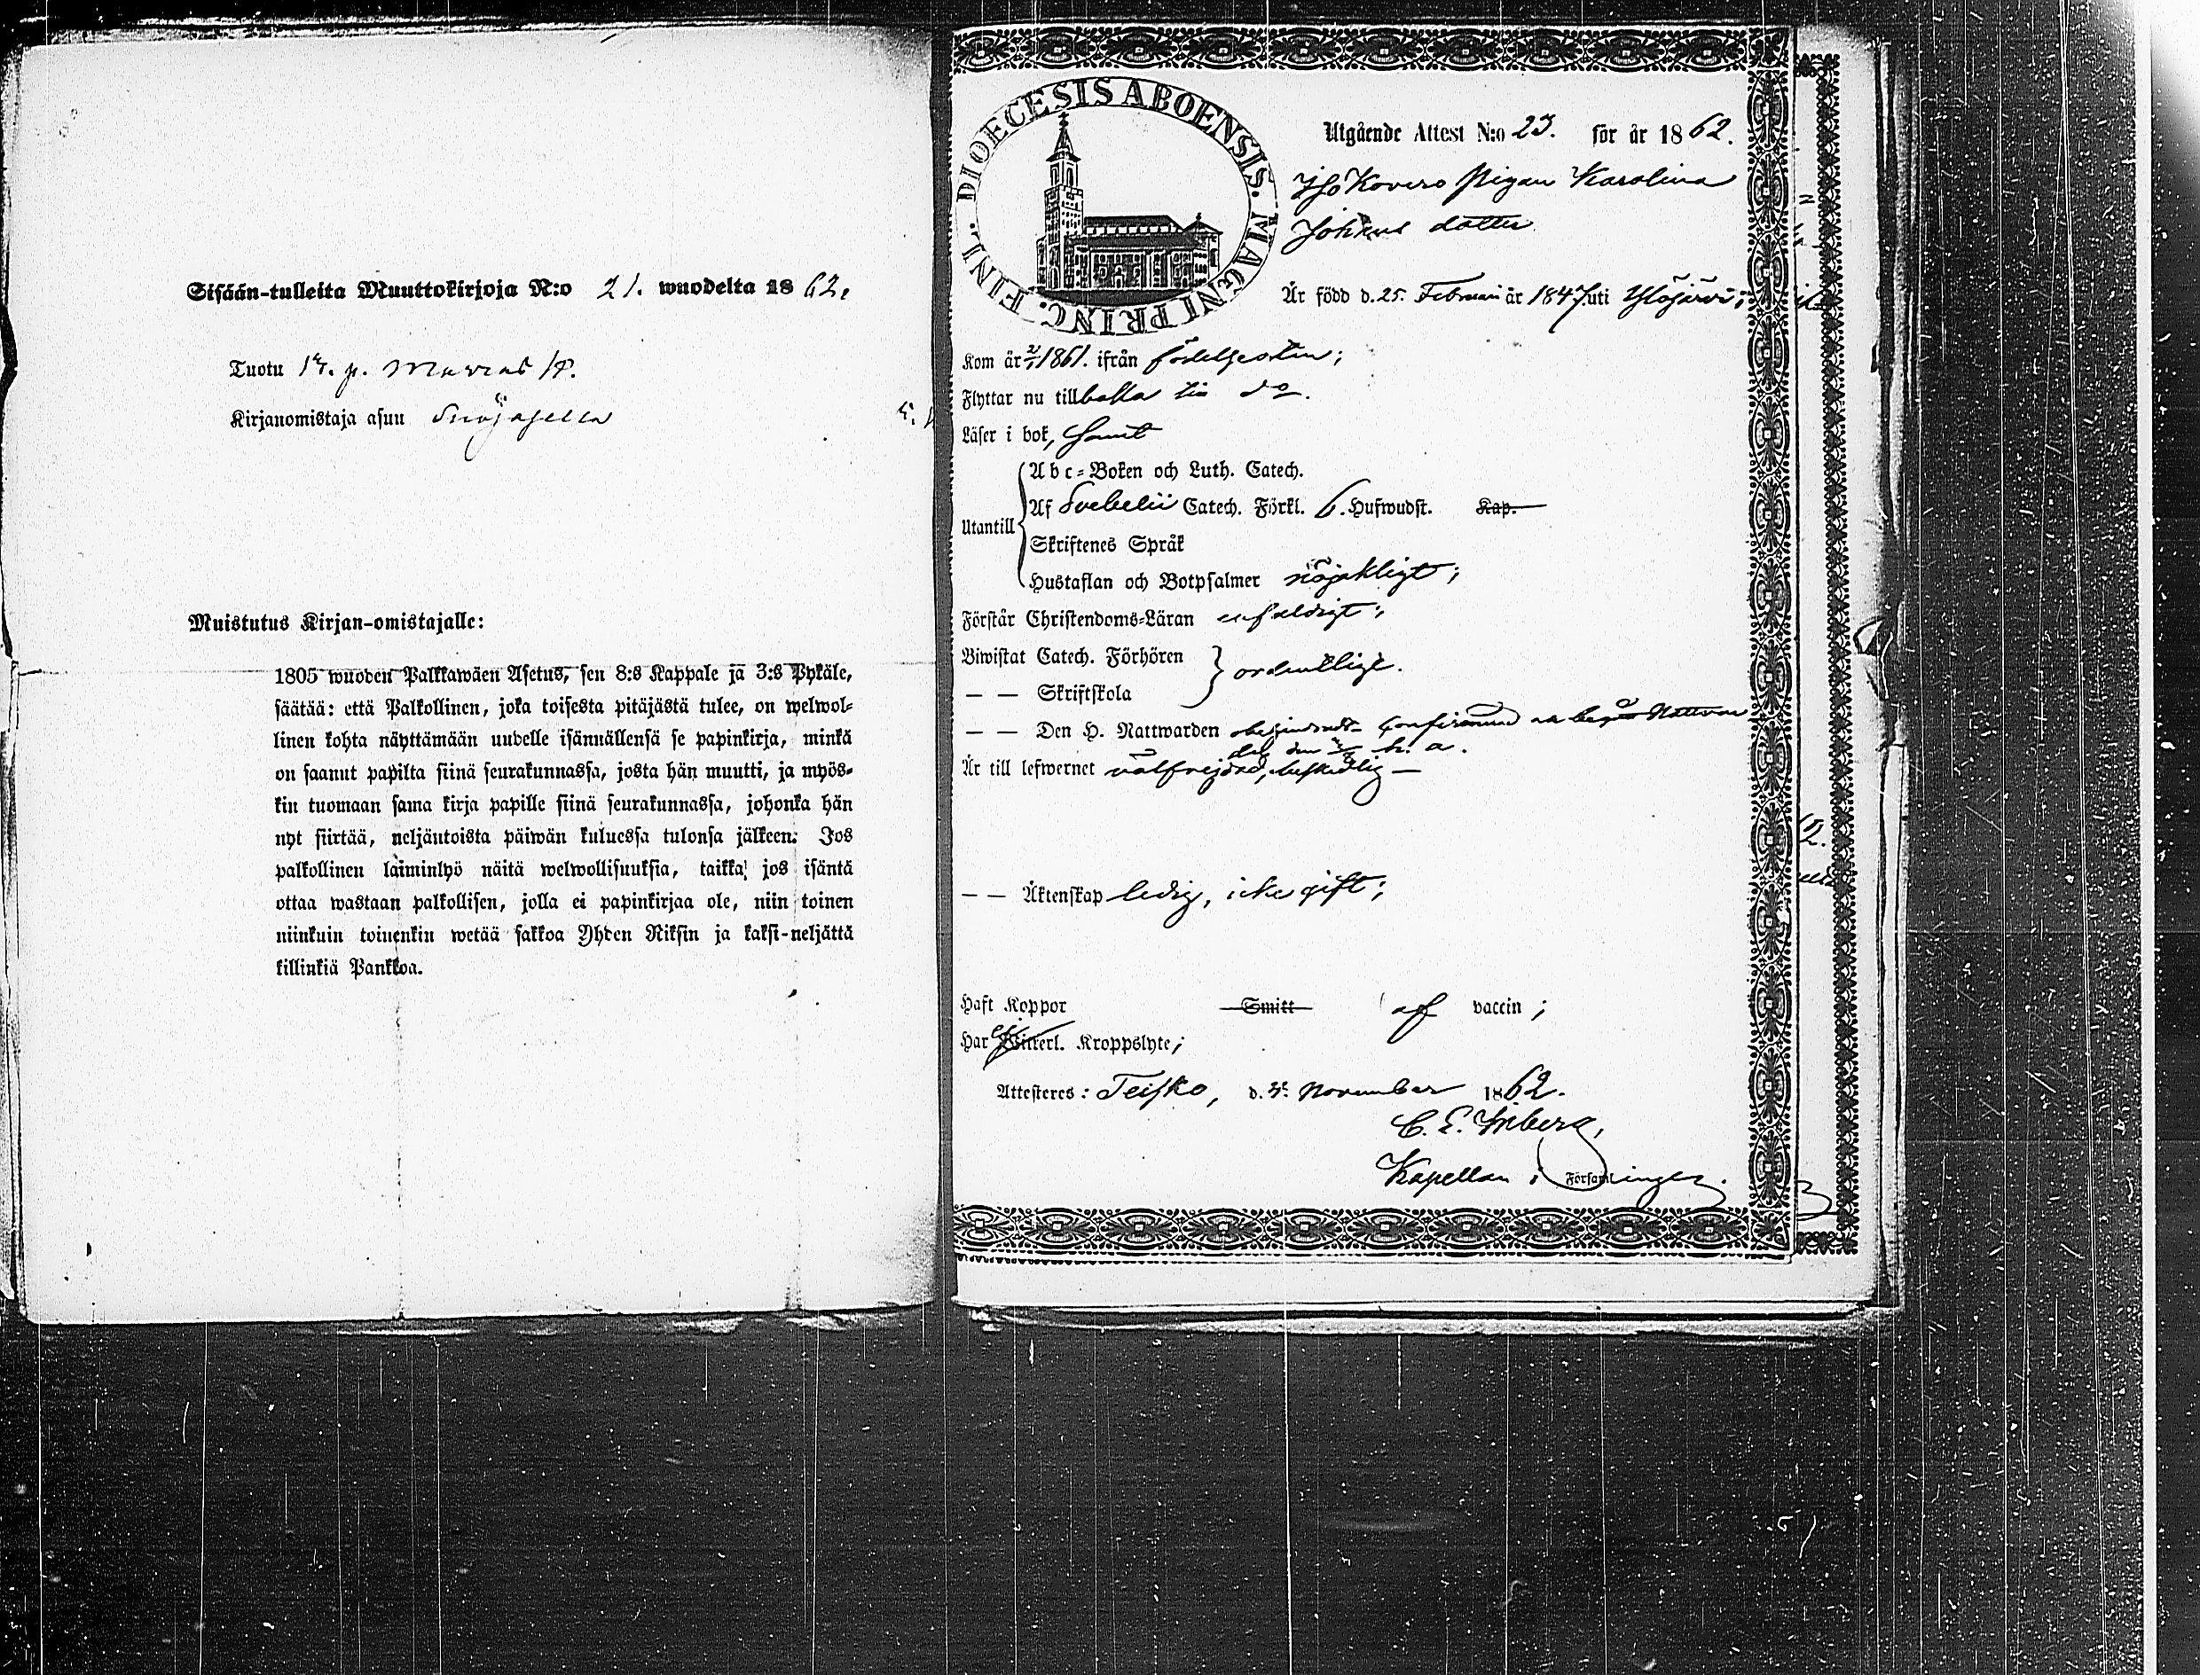 Sisään-tulleita Muuttokirjoja N:o 21. wuodelta 1862.
Tuotu 14. p. Marras k.
Kirjanomistaja asuu
Muistutus Kirjan-omistajalle:
1805 wuoden Palkkawäen Asetus, sen 8:s Kappale ja 3:s Pykäle,
säätää: että Palkollinen, joka toisesta pitäjästä tulee, on welwol-
linen kohta näyttämään uudelle isännällensä se papinkirja, minkä
on saanut papilta siinä seurakunnassa, josta hän muutti, ja myös-
kin tuomaan sama kirja papille siinä seurakunnassa, johonka hän
nyt siirtää, neljäntoista päiwän kuluessa tulonsa jälkeen. Jos
palkollinen laiminlyö näitä welwollisuuksia, taikka jos isäntä
ottaa wastaan palkollisen, jolla ei papinkirjaa ole, niin toinen
niinkuin toinenkin wetää sakkoa Yhden Riksin ja kaksi-neljättä
killinkiä Pankkoa.
DIOECESIS ABOENSIS. MAGNI PRINC. FINL.
Utgående Attest N:o 23. för år 1862.
Iso Kovero Pigan Karolina
Johans dotter
Är född d. 25. Februari år 1847. uti Ylöjärvi;
Kom år 1861. ifrån födelseorten;
Flyttar nu tillbaka till do.
Läser i bok, samt
Utantill
Abc-Boken och Luth. Catech.
Af Svebelii Catech. Förkl. 6. Hufwudst. Kap.
Skriftenes Språk
Hustaflan och Botpsalmer nöjaktligt;
Förstår Christendoms-Läran enfaldigt;
Biwistat Catech. Förhören
— — Skriftskola
ordentligt.
— — Den H. Nattwarden obehindrad
Är till lefwernet välfrejdad, beskedlig —
— — Äktenskap ledig, icke gift;
Haft Koppor Smitt af vaccin;
Har ej Witterl. Kroppslyte;
Attesteres: Teisko, d. 4. November 1862.
C. E. Friberg,
Kapellan i Församlingen.